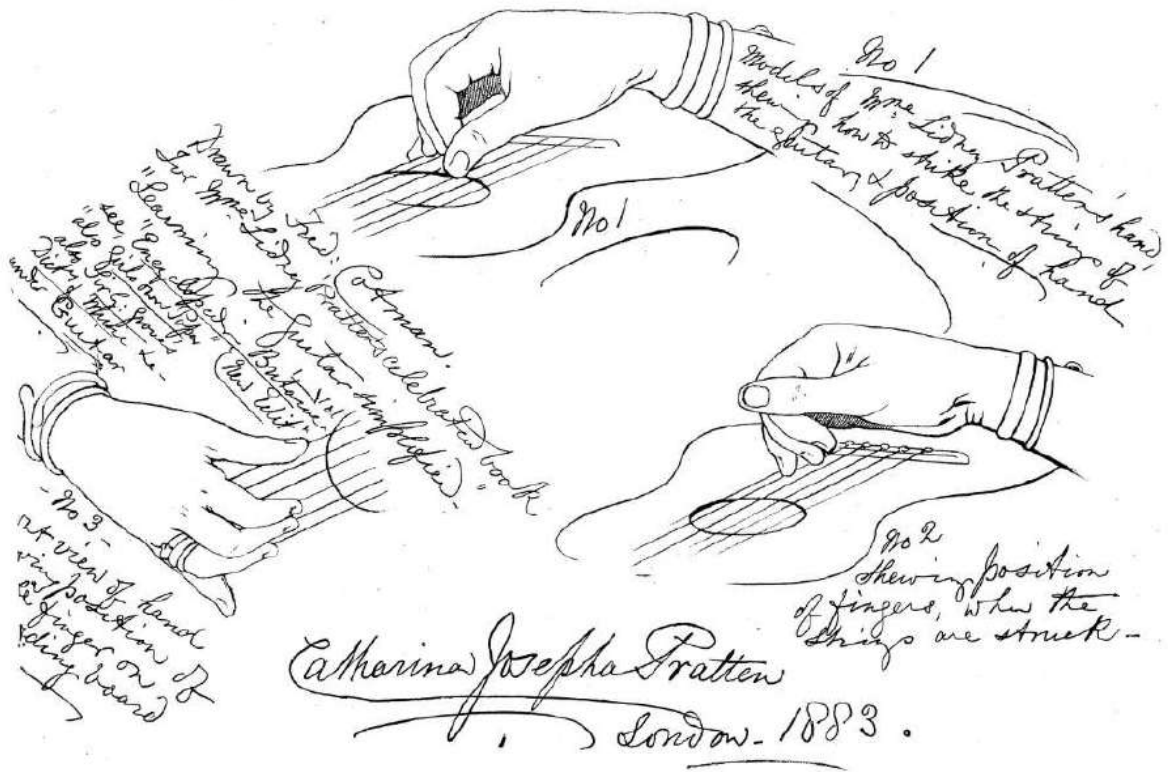 No 1
Models of Mme Sidney Pratten's hand
shewing how to strike the string of
the guitar, & position of hand
No 1
Drawn by Fred. Cotman.
For Mme Sidney Pratten's celebrated book
"Learning the Guitar simplified."
see "Encyclopedia Britannica
New Edit
also
also Sir G. Groves
Dict of Music &c
under Guitar
No 2
shewing position
of fingers, when the
strings are struck-
- No 3 -
view of hand
position of
finger on
board
Catharina Josepha Pratten
London - 1883.